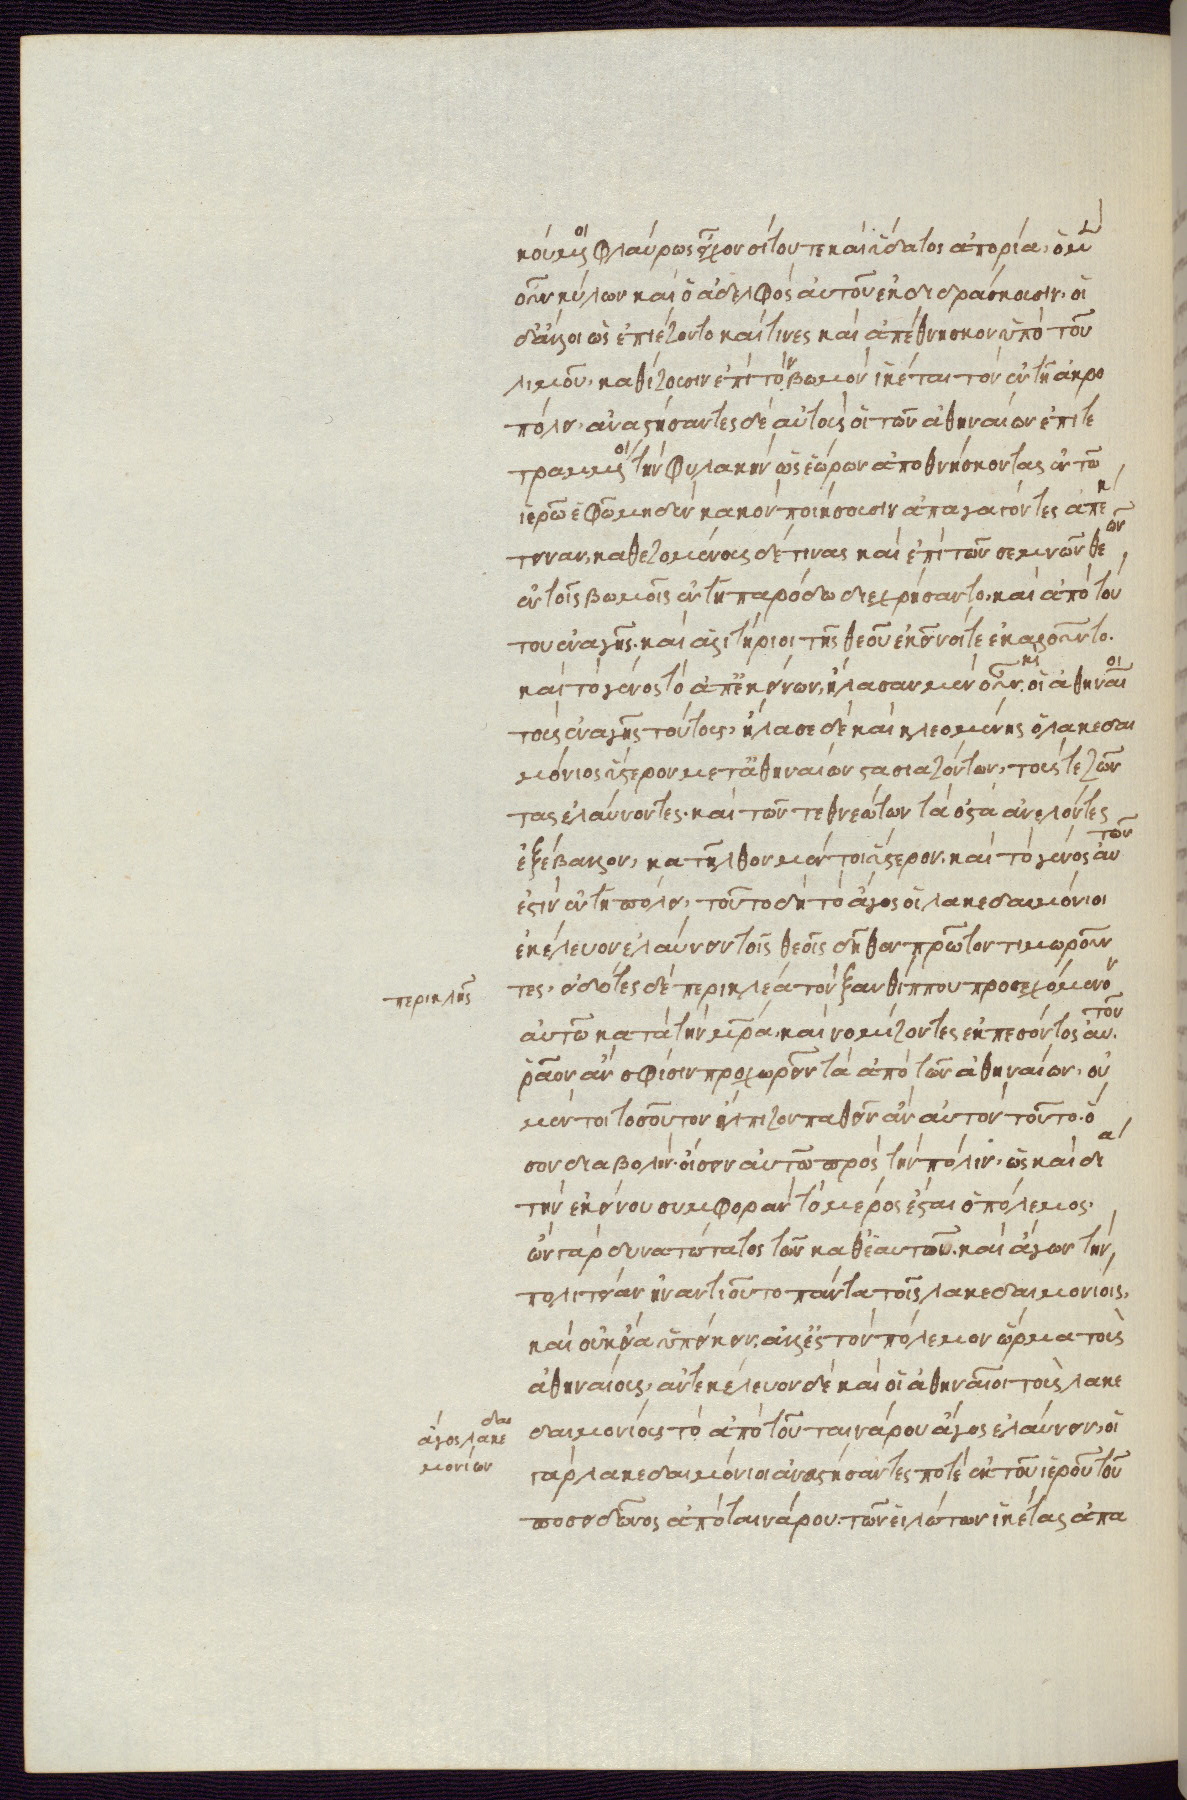 κούμενοι φλαύρως εἶχον σίτου τε καὶ ὕδατος ἀπορία, ὁ μὲν
οὖν κύλων καὶ ὁ ἀδελφὸς αὐτοῦ ἐκδιδράσκουσιν. οἱ
δ' ἄλλοι ὡς ἐπιέζοντο καί τινες καὶ ἀπέθνησκον ὑπὸ τοῦ
λιμοῦ, καθίζουσιν ἐπὶ τὸν βωμὸν ἱκέται τὸν ἐν τῇ ἀκρο
πόλει. ἀναστήσαντες δὲ αὐτοὺς οἱ τῶν ἀθηναίων ἐπιτε
τραμμένοι τὴν φυλακὴν ὡς ἑώρων ἀποθνήσκοντας ἐν τῶ
ἱερῶ ἐφ' ὧ μηδὲν κακὸν ποιήσουσιν ἀπαγαγόντες ἀπέκ
τειναν, καθεζομένους δέ τινας καὶ ἐπὶ τῶν σεμνῶν θεῶν
ἐν τοῖς βωμοῖς ἐν τῇ παρόδω διεχρήσαντο, καὶ ἀπὸ τού
του ἐναγεῖς καὶ ἀλιτήριοι τῆς θεοῦ ἐκεῖνοί τε ἐκαλοῦντο.
καὶ τὸ γένος τὸ ἀπ' ἐκείνων, ἤλασαν μὲν οὖν καὶ οἱ ἀθηναῖοι
τοὺς ἐναγεῖς τούτους, ἤλασε δὲ καὶ κλεομένης ὁ λακεδαι
μόνιος ὕστερον μετὰ ἀθηναίων στασιαζόντων, τούς τε ζῶν
τας ἐλαύνοντες. καὶ τῶν τεθνεώτων τὰ ὀστᾶ ἀνελόντες
ἐξέβαλλον, κατῆλθον μέντοι ὕστερον, καὶ τὸ γένος αὐτῶν
ἐστὶν ἐν τῇ πόλει, τοῦτο δὴ τὸ ἄγος οἱ λακεδαιμόνιοι
ἐκέλευον ἐλαύνειν τοῖς θεοῖς δῆθεν πρῶτον τιμωροῦν
τες, εἰδότες δὲ περικλέα τὸν ξανθίππου προσεχόμενον
αὐτῶ κατὰ τὴν μητέρα, καὶ νομίζοντες ἐκπεσόντος αὐτοῦ.
ῥᾶον ἂν σφίσιν προχωρεῖν τὰ ἀπὸ τῶν ἀθηναίων, οὐ
μέντοι τοσοῦτον ἤλπιζον παθεῖν ἂν αὐτὸν τοῦτο. ὅ
σον διαβολὴν οἴσειν αὐτῶ πρὸς τὴν πόλιν, ὡς καὶ διὰ
τὴν ἐκείνου συμφορὰν τὸ μέρος ἔσται ὁ πόλεμος,
ὢν γὰρ δυνατώτατος τῶν καθ' ἑαυτὸν. καὶ ἄγων τὴν
πολιτείαν ἠναντιοῦτο πάντα τοῖς λακεδαιμονίοις,
καὶ οὐκ εἴα ὑπείκειν. ἀλλ' ἐς τὸν πόλεμον ὥρμα τοὺς
ἀθηναίους, ἀντεκέλευον δὲ καὶ οἱ ἀθηναῖοι τοὺς λακε
δαιμονίους τὸ ἀπὸ τοῦ ταινάρου ἄγος ἐλαύνειν, οἱ
γὰρ λακεδαιμόνιοι ἀναστήσαντές ποτε ἐκ τοῦ ἱεροῦ τοῦ
ποσειδῶνος ἀπὸ ταινάρου. τῶν εἱλώτων ἱκέτας ἀπα
περικλῆς
ἄγος λακεδαι
μονίων